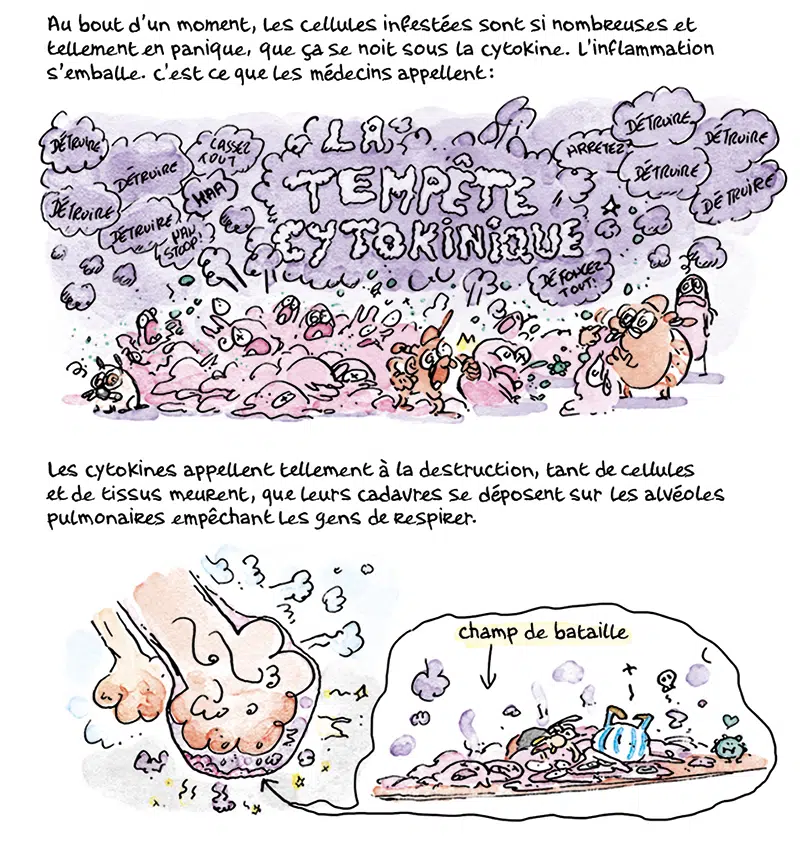 Au bout d'un moment, les cellules infestées sont si nombreuses et
tellement en panique, que ça se noit sous la cytokine. L'inflammation
s'emballe. c'est ce que les médecins appellent :
DÉTRUIRE
DÉTRUIRE
CASSEZ
TOUT
HAA
DÉTRUIRE
DÉTRUIRE
HAN
STOOP!
LA
TEMPÊTE
CYTOKINIQUE
ARRÊTEZ?
DÉTRUIRE
DÉTRUIRE
DÉTRUIRE
DÉTRUIRE
DÉFONCEZ
TOUT!
Les cytokines appellent tellement à la destruction, tant de cellules
et de tissus meurent, que leurs cadavres se déposent sur les alvéoles
pulmonaires empêchant les gens de respirer.
champ de bataille